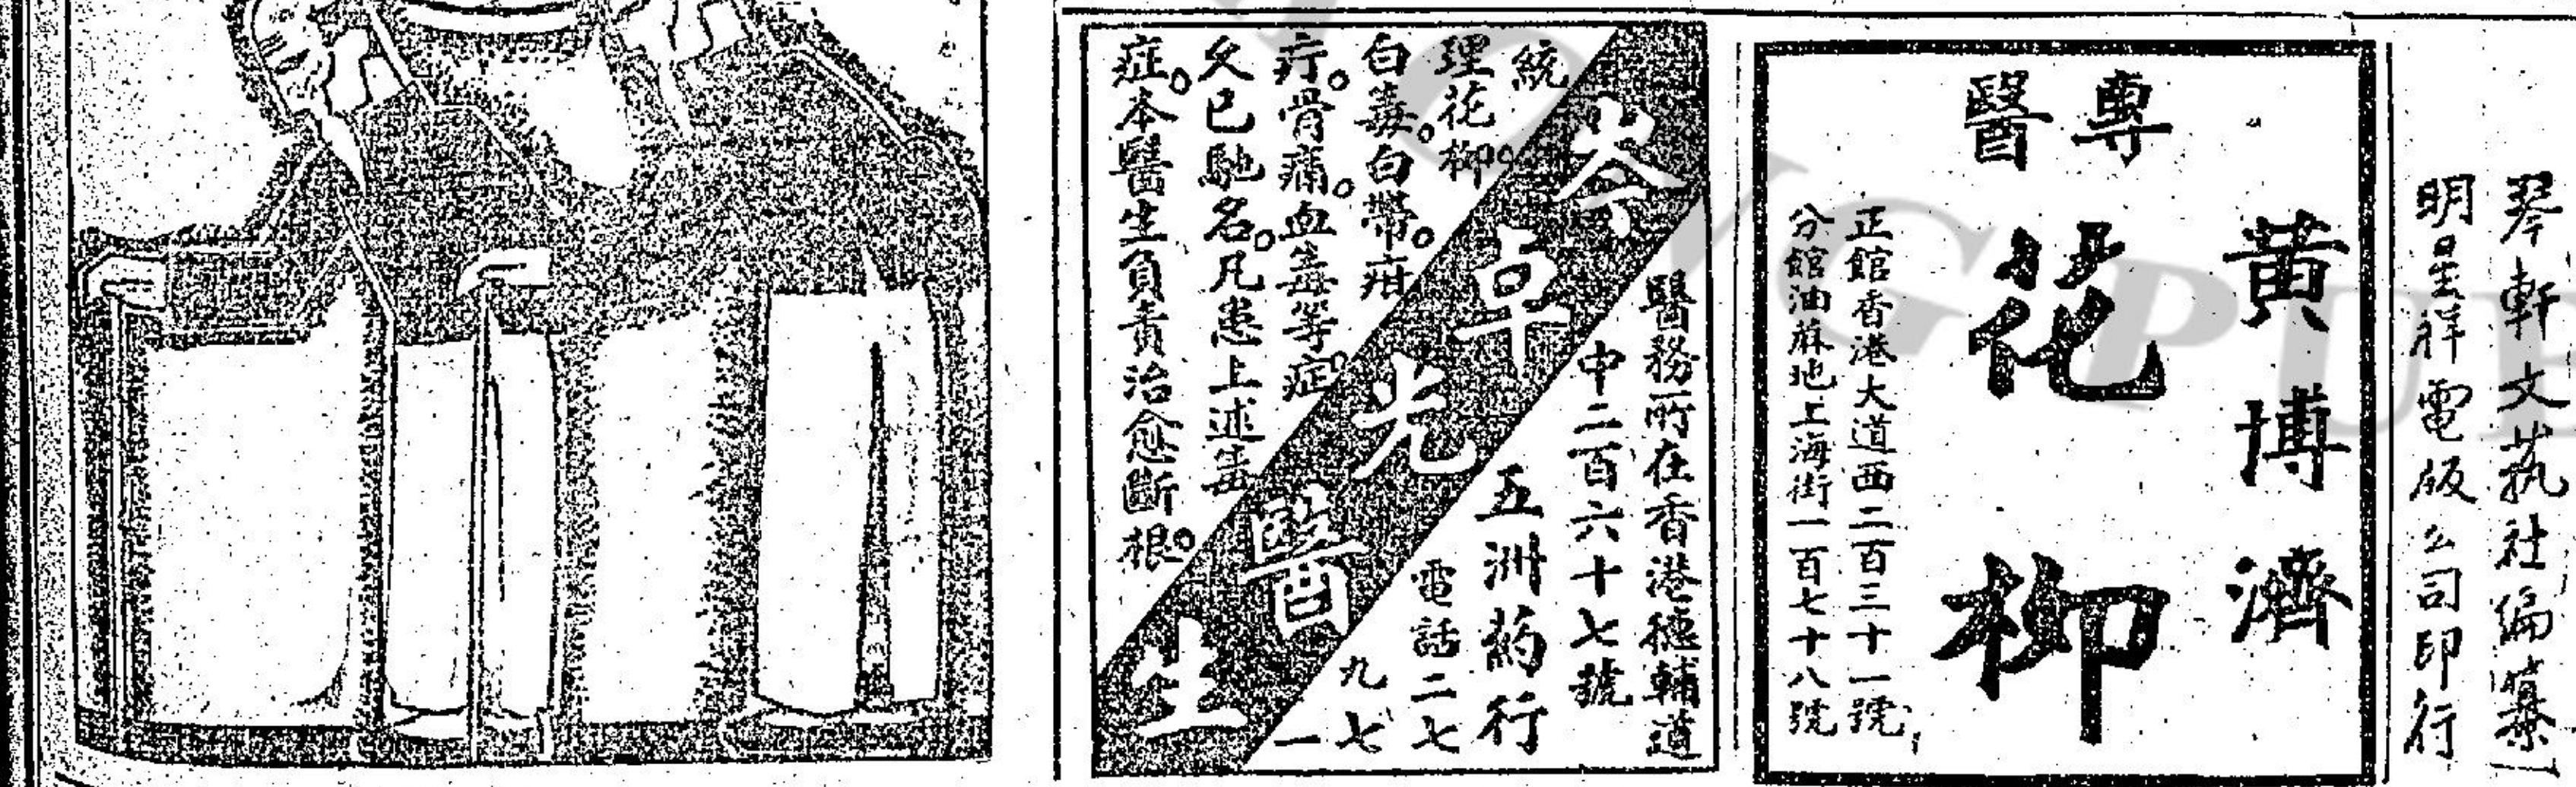 琴軒文蓺社編纂
明星祥電版公司印行
黃博濟
專醫
花柳
正館香港大道西二百三十一號
分館油蔴地上海街一百七十八號
岑卓光醫生
統
理花柳。
白毒。白帶。疳
疔。骨痛。血毒等症。
久已馳名。凡患上述毒
症。本醫生負責治愈斷根。
醫務所在香港德輔道
中二百六十七號
五洲葯行
電話二七
九七
一